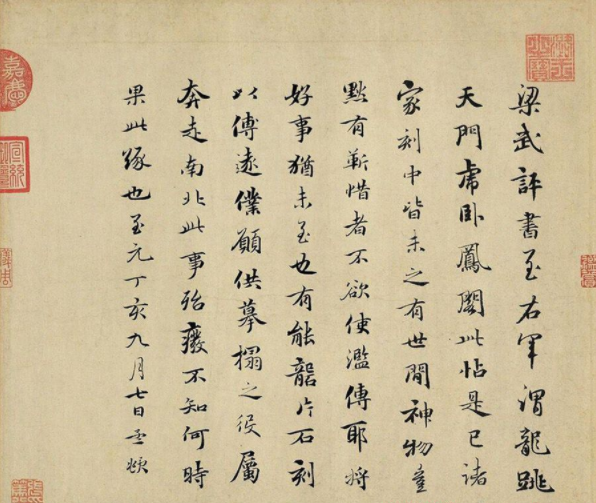 梁武評書至右軍謂龍跳
天門虎卧鳳閣此帖是已諸
家刻中皆未之有世間神物豈
默有靳惜者不欲使濫傳耶將
好事猶未至也有能礱片石刻
以傳遠僕願供摹搨之役屬
奔走南北此事殆廢不知何時
果此緣也至元丁亥九月七日孟頫
嘉慶
宣統